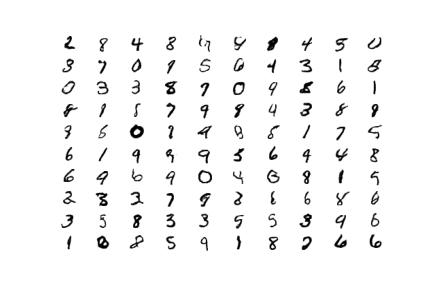 2 8 4 8 4 5 0
3 7 0 9 5 6 4 3 1 8
0 3 3 8 7 0 9 8 6 1
8 1 5 7 9 9 4 3 8 9
9 6 0 1 9 8 8 1 7 5
6 1 9 9 9 5 6 9 4 8
6 9 6 9 0 4 8 1 5
2 8 3 7 9 8 6 6
3 5 8 3 3 5 5 3 9 6
1 8 5 9 1 8 2 6 6